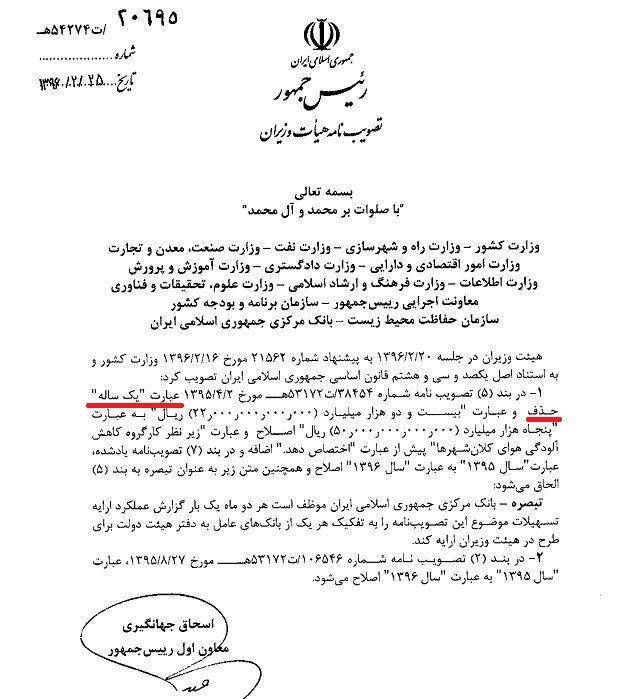 ۲۰۶۹۵
/ت۵۴۲۷۴هـ
شماره ....................
تاریخ ....۱۳۹۶/۲/۲۵
جمهوری اسلامی ایران
رئیس جمهور
تصویب نامه هیأت وزیران
بسمه تعالی
"با صلوات بر محمد و آل محمد"
وزارت کشور – وزارت راه و شهرسازی – وزارت نفت – وزارت صنعت، معدن و تجارت
وزارت امور اقتصادی و دارایی – وزارت دادگستری – وزارت آموزش و پرورش
وزارت اطلاعات – وزارت فرهنگ و ارشاد اسلامی – وزارت علوم، تحقیقات و فناوری
معاونت اجرایی رییس‌جمهور – سازمان برنامه و بودجه کشور
سازمان حفاظت محیط زیست – بانک مرکزی جمهوری اسلامی ایران
هیئت وزیران در جلسه ۱۳۹۶/۲/۲۰ به پیشنهاد شماره ۲۱۵۶۲ مورخ ۱۳۹۶/۲/۱۶ وزارت کشور و
به استناد اصل یکصد و سی و هشتم قانون اساسی جمهوری اسلامی ایران تصویب کرد:
۱– در بند (۵) تصویب نامه شماره ۳۸۴۵۴/ت۵۳۱۷۲هـ مورخ ۱۳۹۵/۴/۲ عبارت "یک ساله"
حذف و عبارت "بیست و دو هزار میلیارد (۲۲٫۰۰۰٫۰۰۰٫۰۰۰٫۰۰۰) ریال" به عبارت
"پنجاه هزار میلیارد (۵۰٫۰۰۰٫۰۰۰٫۰۰۰٫۰۰۰) ریال" اصلاح و عبارت "زیر نظر کارگروه کاهش
آلودگی هوای کلان‌شهرها" پیش از عبارت "اختصاص دهد." اضافه و در بند (۷) تصویب‌نامه یادشده،
عبارت"سال ۱۳۹۵" به عبارت "سال ۱۳۹۶" اصلاح و همچنین متن زیر به عنوان تبصره به بند (۵)
الحاق می‌شود:
تبصره – بانک مرکزی جمهوری اسلامی ایران موظف است هر دو ماه یک بار گزارش عملکرد ارایه
تسهیلات موضوع این تصویب‌نامه را به تفکیک هر یک از بانک‌های عامل به دفتر هیئت دولت برای
طرح در هیئت وزیران ارایه کند.
۲– در بند (۲) تصویب نامه شماره ۱۰۶۵۴۶/ت۵۳۱۷۲هـ مورخ ۱۳۹۵/۸/۲۷، عبارت
"سال ۱۳۹۵" به عبارت "سال ۱۳۹۶" اصلاح می‌شود.
اسحاق جهانگیری
معاون اول رییس‌جمهور